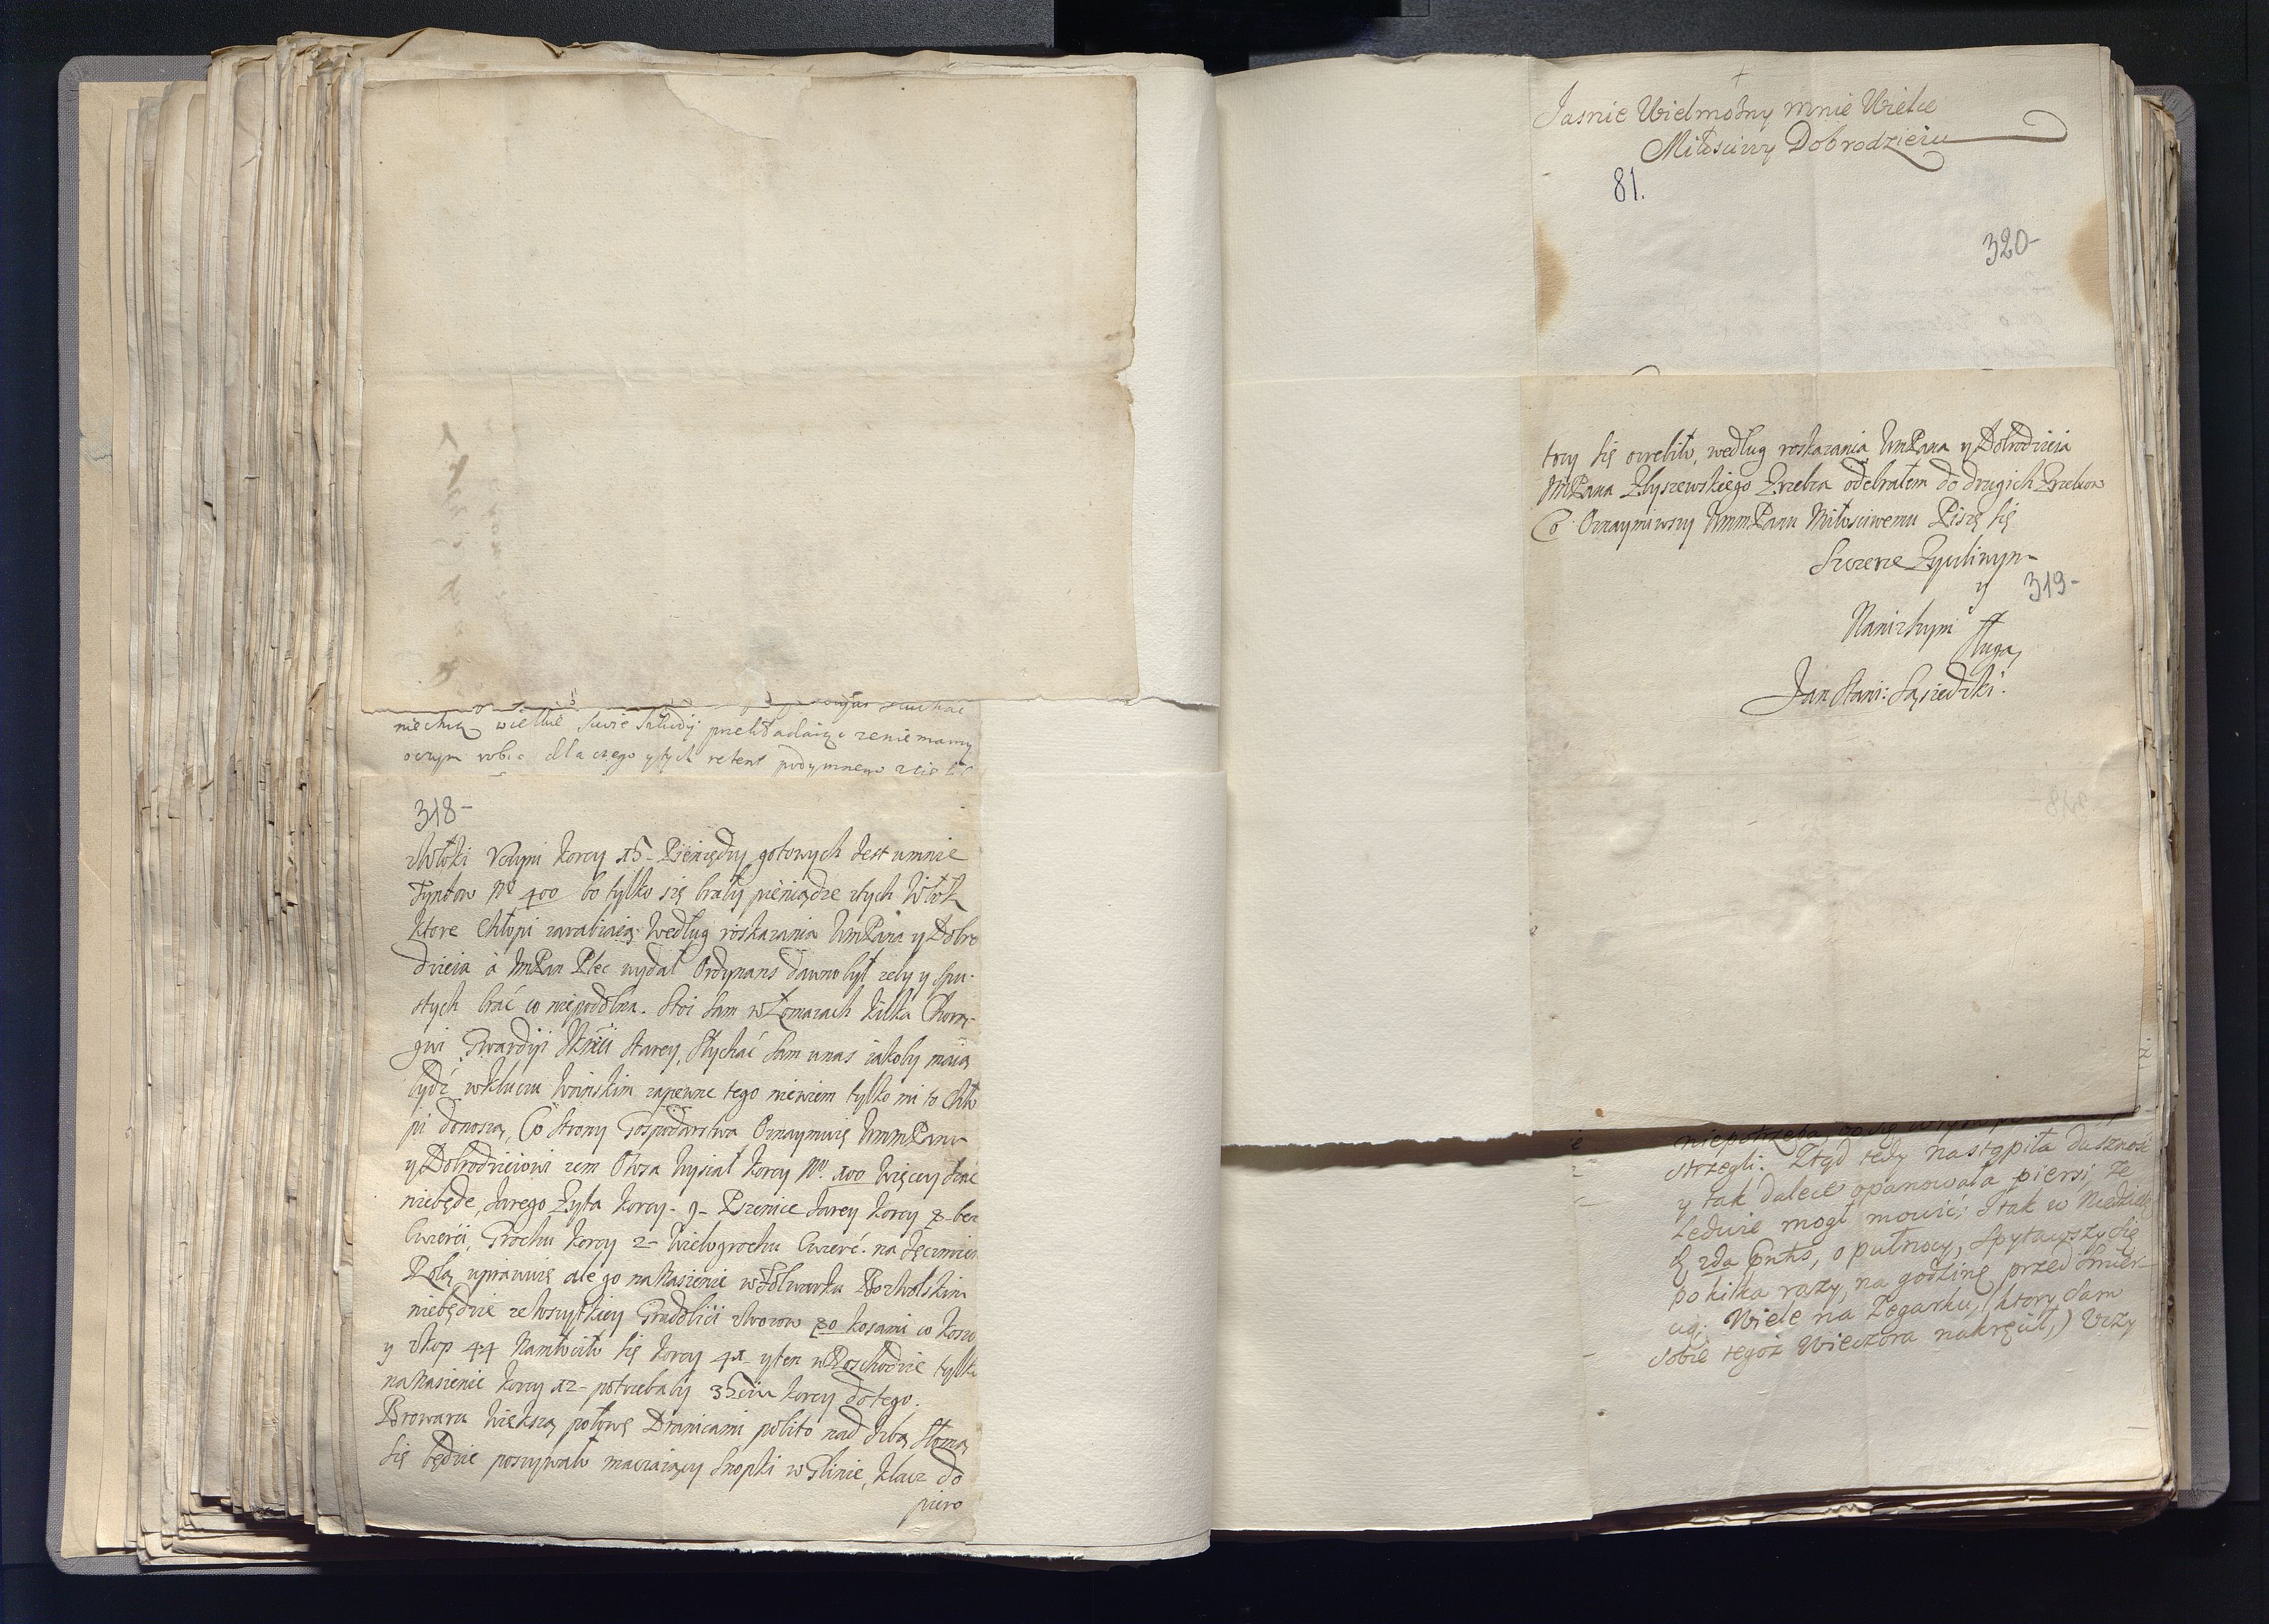 niechcą wielkie
oczym robic dla czego y tych retent podymnego
318-
Włoki korcy 15- Pieniędzy gotowych Jest umnie
Tynfow No 400 bo tylko się brały pieniądze ztych Włok
Ktore Chłopi zarabiaią. Według roskazania WmPana y Dobro
dzieia a ImPan Plec wydał Ordynans dawno był zeby y spu-
stych brać co niepodobna. Stoi sam w Łomazach kilka Chorą-
gwi Gwardyi starey, słychać sam unas iakoby maią
bydź wkluczu Woinskim zapewne tego niewiem tylko mi to Chło
pi donoszą, Co strony Gospodarstwa Oznaymuię WmmPanu
y Dobrodzieiowi zem Owsa Wysiał korcy No. 100 Więcey siac
niebęde, Jarego Zyta korcy- 9- Pszenice Jarey korcy 8- bez
Cwierći, Grochu korcy 2- Wielogrochu Cwierć. na Jęczmien
Rolą uprawuię ale go na Nasienie w Folwarku
niebędzie ze wszytkiey 80 kosami co
y Kop 44 Namłociło się korcy 41- y ten w Rozchodzie tylko
na Nasienie korcy 12- potrzebaby korcy do tego.
Browaru Większą połowę Dranicami pobito nad Izbą słomą
się będzie poszywało maczaiący snopki w Glinie, Klacz do
piero
+
Jasnie Wielmożny mnie Wielce
Miłosciwy Dobrodzieiu
81.
320-
trzy się ozrebiło, według roskazania WmPana y Dobrodzieia
ImPana Zbyszewskiego Zrzebca odebrałem do drugich Zrzebcow
Co Oznaymiwszy WmmPanu Miłosciwemu Piszę się
Szczerze Zyczliwym
y
319-
Naniższym
sługą
Jan Stani: Sąsiedzki.
strzegli: Ztąd tedy nastąpiła duszność
y tak dalece opanowała piersi, że
Ledwie mogł mowić; I tak w Niedzielę
o pułnocy, spytawszy się
po kilka razy, na godzinę przed smier-
cią; Wiele na Zegarku, (ktory sam
sobie tegoż Wieczora nakręcił,) Vrzy